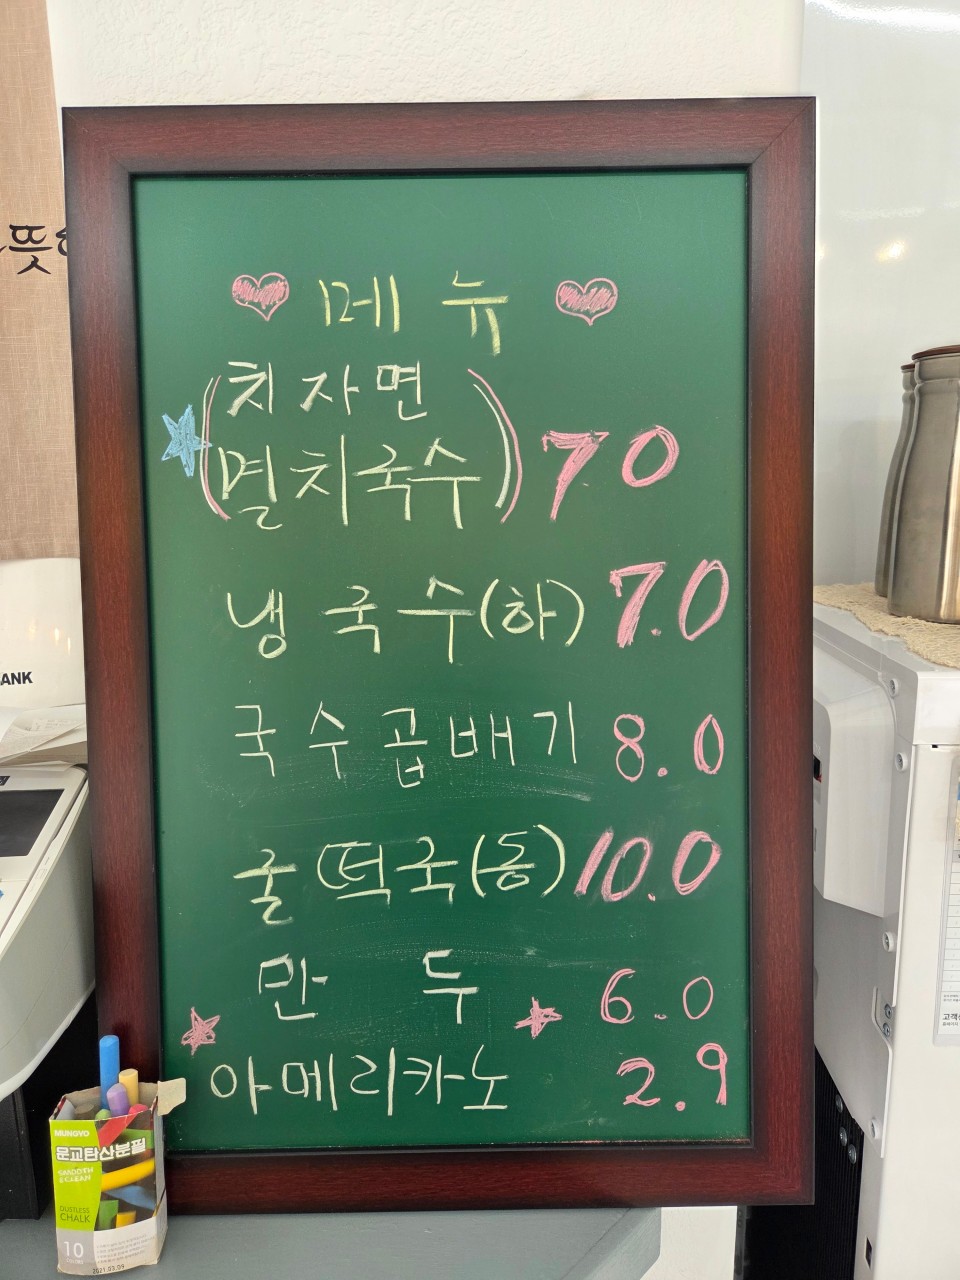 뜻
메 뉴
(치자면
멸치국수) 7.0
냉국수(하) 7.0
국수곱배기 8.0
굴떡국(동) 10.0
만 두 6.0
아메리카노 2.9
ANK
MUNGYO
문교탄산분필
SMOOTH
& CLEAN
DUSTLESS
CHALK
10
2021.03.09
고객